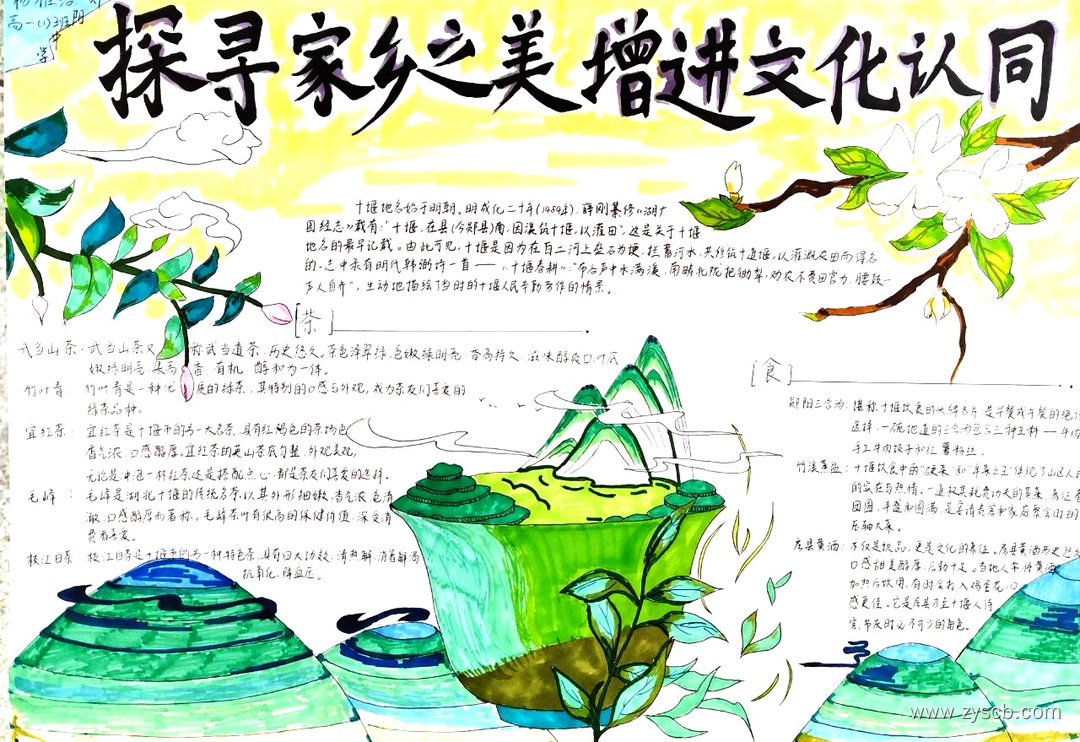 高一(1)班
中
学
探寻家乡之美 增进文化认同
十堰地名始于明朝。明成化二十年(1484年),薛刚纂修《湖广
图经志》载有:"十堰,在县(今郧县)南,因溪筑十堰,以灌田"。这是关于十堰
地名的最早记载。由此可见,十堰是因为在百二河上垒石为埂,拦蓄河水,共修筑十道堰,以灌溉农田而得名
的。志中录有明代韩 诗一首——《十堰春耕》:"布谷声中水满溪,南畴北陇把锄犁,劝农不费田官力,腰鼓一
万人自齐",生动地描绘了当时的十堰人民辛勤劳作的情景。
[茶]
武当山茶:武当山茶又称武当道茶,历史悠久。茶色泽翠绿,色嫩绿明亮 香高持久 滋味醇爽口,叶底
嫩绿明亮 集高香 有机 醇和为一体。
竹叶青: 竹叶青是一种优质的绿茶,其特别的口感与外观,成为茶友们喜爱的
绿茶品种。
宜红茶: 宜红茶是十堰市的另一大名茶,具有红褐色的茶汤色
香气浓,口感醇厚,宜红茶的是山茶底匀整,外观美观,
无论是冲泡一杯红茶还是搭配点心,都是茶友们喜爱的选择。
毛峰: 毛峰是湖北十堰的传统名茶以其外形细嫩,香气浓,色清
澈,口感醇厚而著称。毛峰茶叶有很高的保健价值,深受消
费者喜爱。
枝江白茶 枝江白茶是十堰市的另一种特色茶,具有四大功效:清热解,消暑解渴
抗氧化,降血压。
[食]
郧阳三合汤:堪称十堰饮食的大牌名片 是早餐或午餐的绝
选择,一碗地道的三合汤包含三种主料——牛肉
手工牛肉饺子和红薯粉丝。
竹溪蒸盆:十堰饮食中的"硬菜"和"年菜之王"体现了山区人民
的实在与热情。一道极其耗费功夫的蒸菜 象征着
团圆、丰盛和圆满,是宴请贵客和家庭聚会时的
压轴大菜。
房县黄酒:不仅是饮品,更是文化的象征。房县黄酒历史悠久
口感甜是醇厚,后劲十足。当地人常将黄酒
加热后饮用,有时会打入鸡蛋花,口
感更佳。它是房县乃至十堰人待
客,节庆时必不可少的角色。
www.zyscb.com